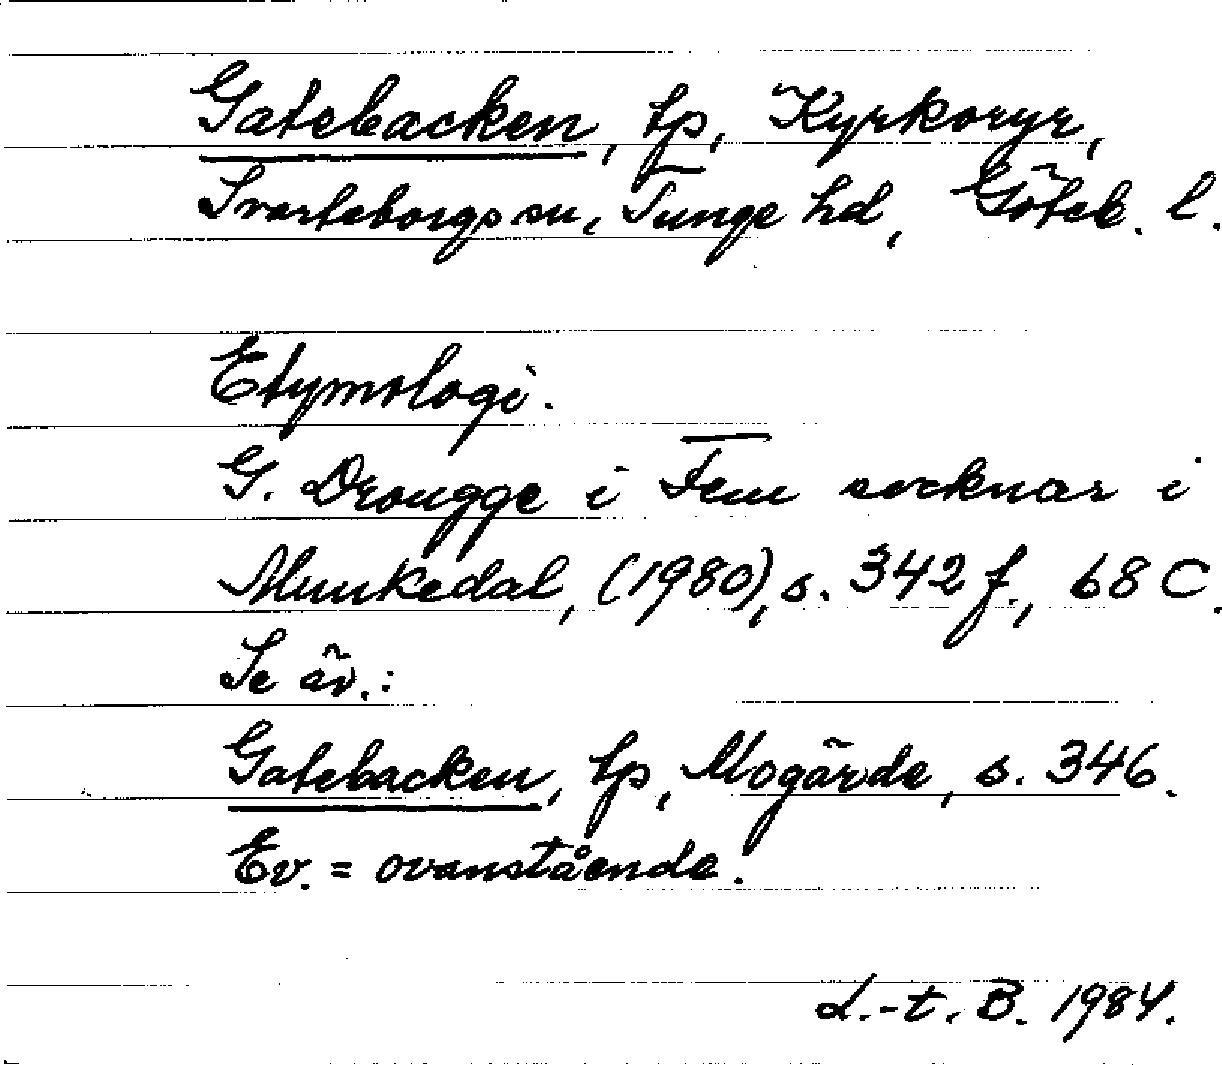 Gatebacken, tp, Kyrkoryr,
Svarteborgs sn, Tunge hd, Göteb. l.
Etymologi.
G. Drougge i Fem socknar i
Munkedal, (1980), s. 342 f., 68 C.
Se äv.:
Gatebacken, tp, Mogärde, s. 346.
Ev. = ovanstående.
L.-t. B. 1984.